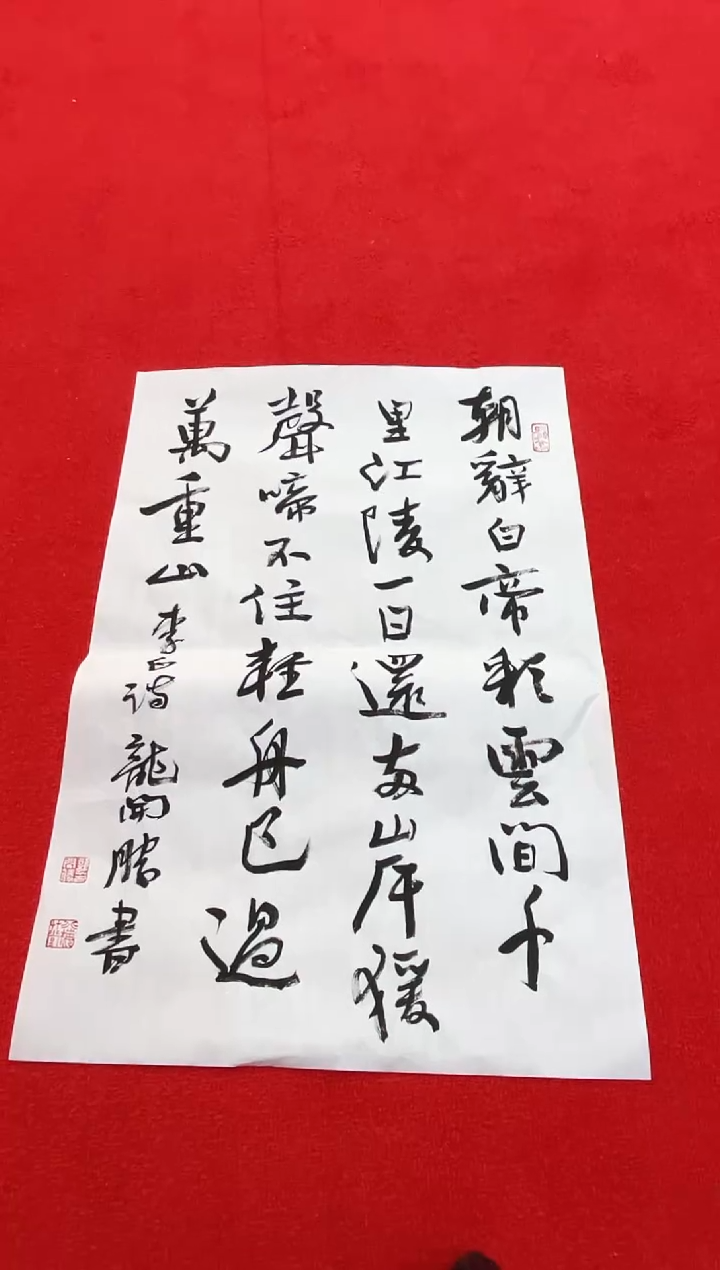 朝辭白帝彩雲間千
里江陵一日還兩山岸猨
聲啼不住輕舟已過
萬重山 李白詩 龍開勝書